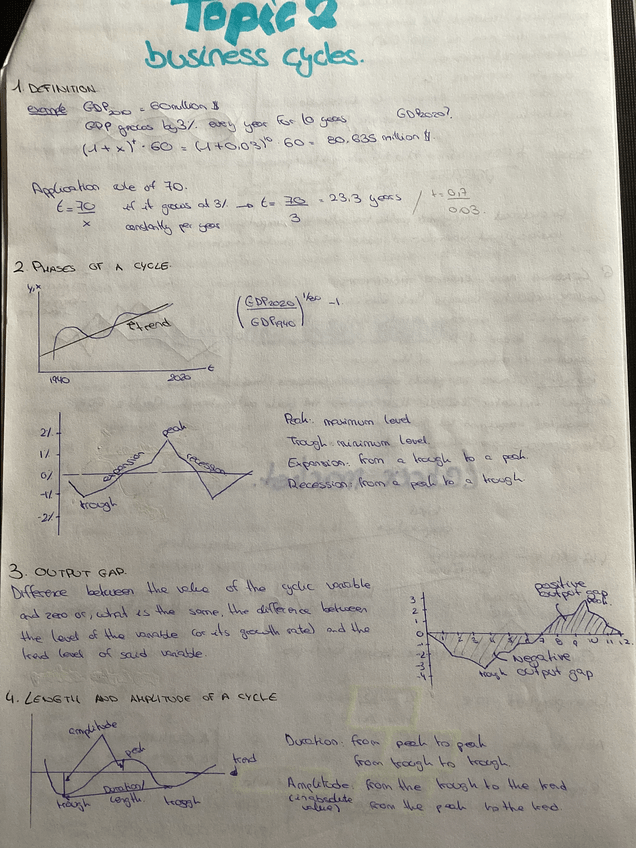 Topic 2
business cycles.
1 DEFINITION
example GDP2010 = 60 million $
GDP grows by 3% every year for 10 years GDP2020?
(1+x)^t · 60 = (1+0.03)^10 · 60 = 80.635 million $.
Application rule of 70.
t = 70/x if it grows at 3% → t = 70/3 = 23.3 years / t = 0.7/0.03
constantly per year
2 PHASES OF A CYCLE.
(GDP2020/GDP1940)^1/80 -1
trend
t
1940 2020
2%
1%
0%
-1%
-2%
trough
expansion
peak
recession
Peak: maximum level
Trough: minimum level.
Expansion: from a trough to a peak.
Recession: from a peak to a trough
3. OUTPUT GAP.
Difference between the value of the cyclic variable
and zero or, what is the same, the difference between
the level of the variable (or its growth rate) and the
trend level of said variable.
positive
output gap
peak.
3
2
1
0
-1
-2
-3
-4
8 9 10 11 12
Negative
trough output gap
4. LENGTH AND AMPLITUDE OF A CYCLE
amplitude
peak
trend
Duration/
Length.
trough trough
Duration: from peak to peak
from trough to trough.
Amplitude: from the trough to the trend
(in absolute value) from the peak to the tred